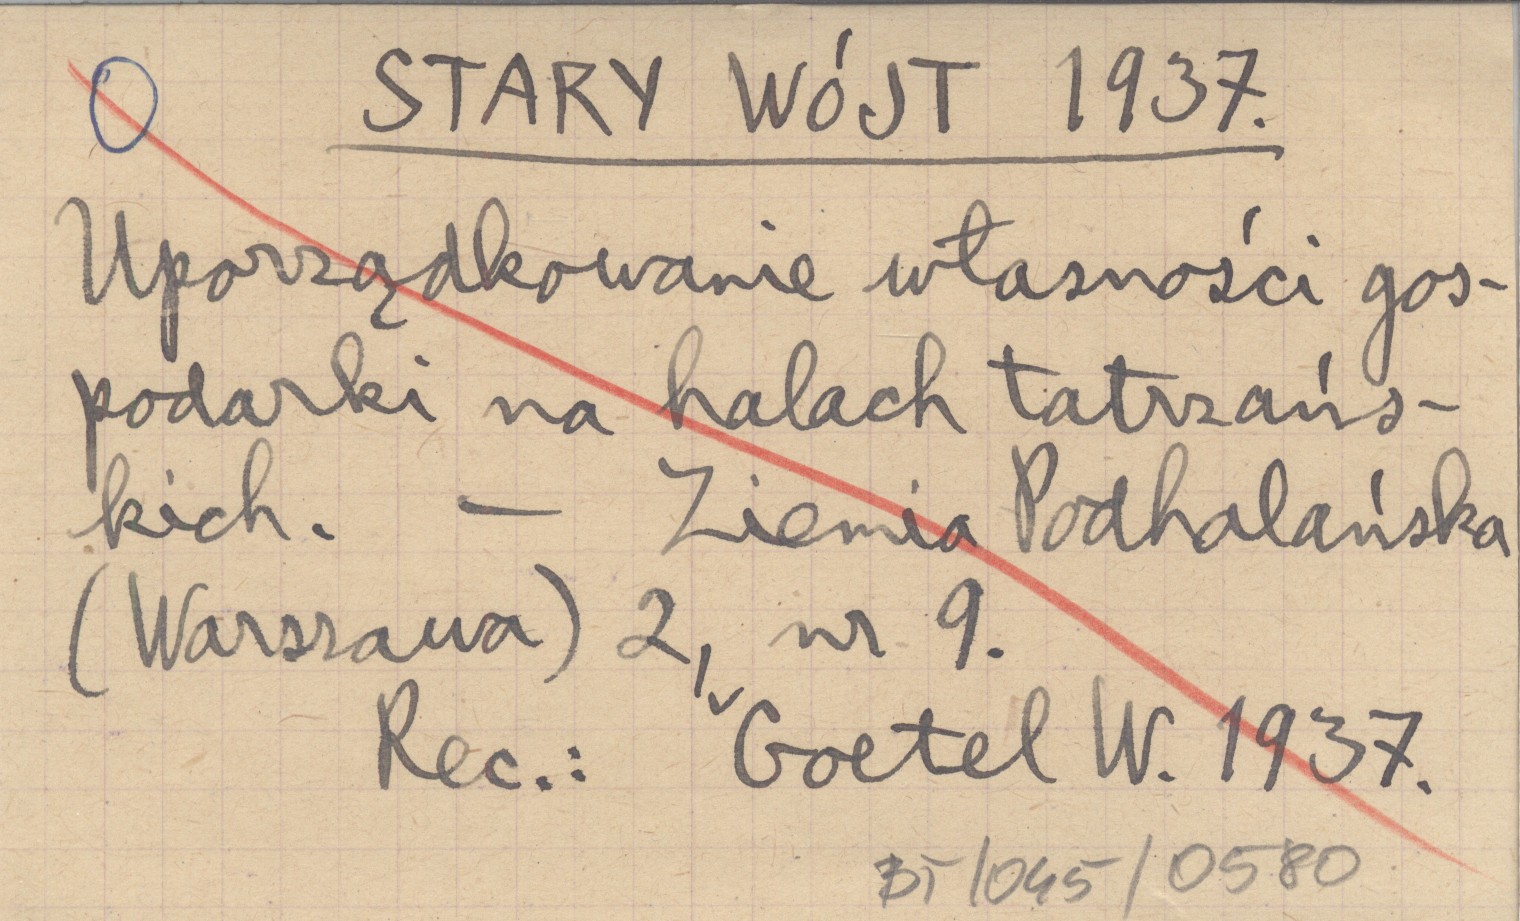 STARY WÓJT 1937.
Uporządkowanie własności gos-
podarki na halach tatrzańs-
kich. — Ziemia Podhalańska
(Warszawa) 2, nr 9.
Rec.: Goetel W. 1937.
BT/045/0580